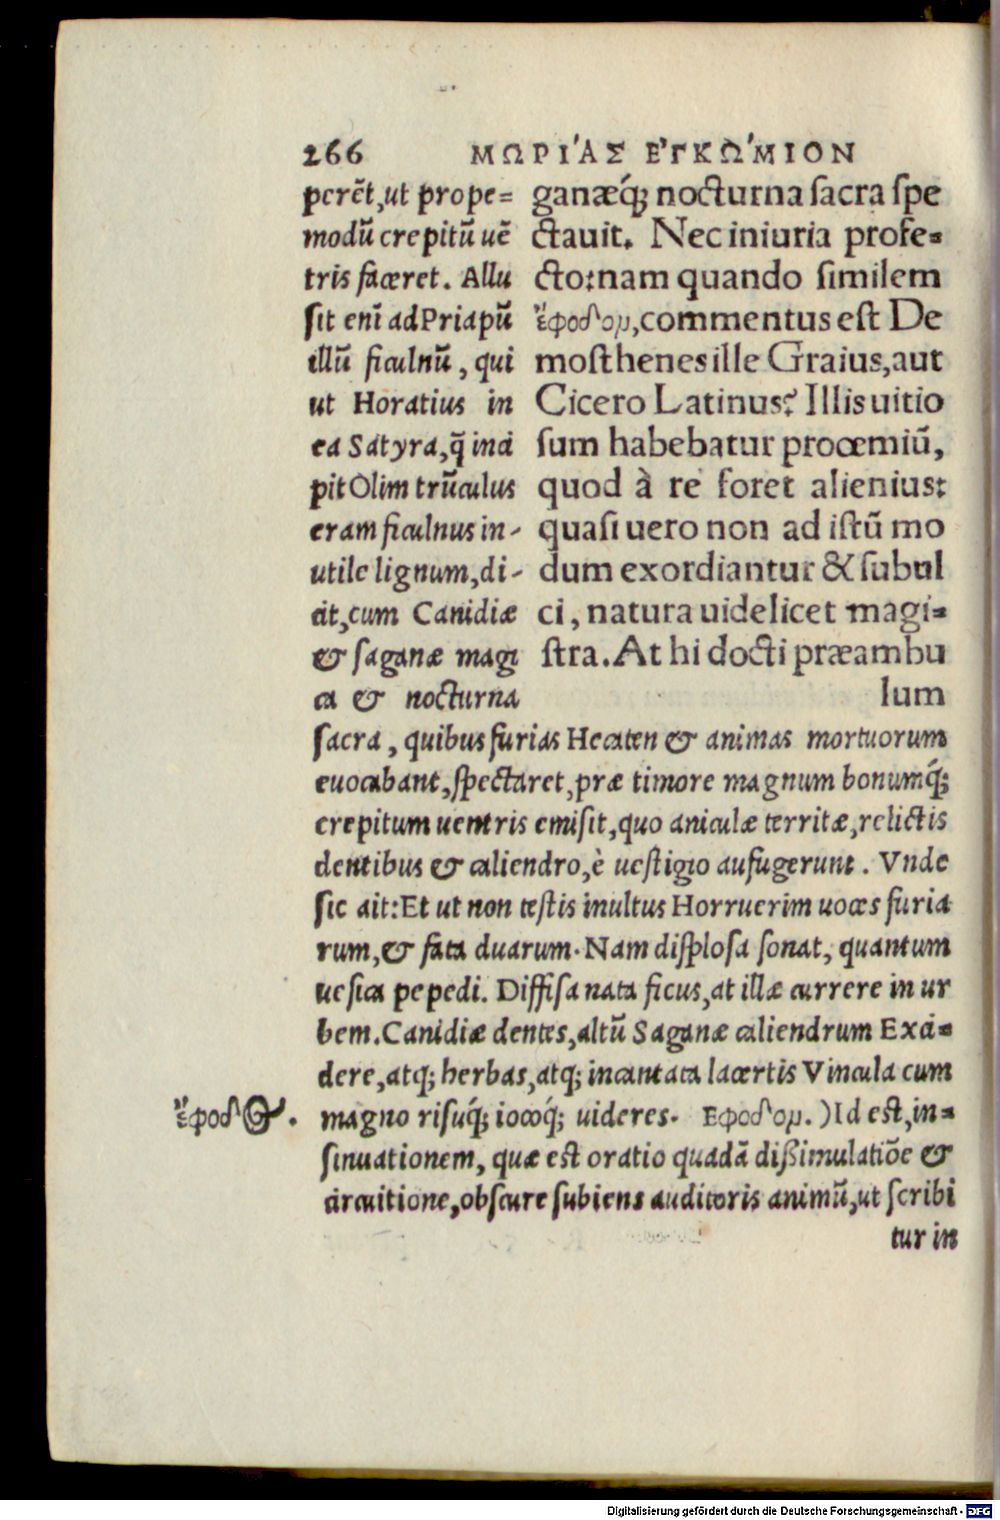 266 ΜΩΡΙ´ΑΣ ΕʼΓΚΩ´ΜΙΟΝ
ganæq́ꝫ nocturna sacra spe
ctauit. Nec iniuria profe-
cto:nam quando similem
ἔφοδομ,commentus est De
mosthenes ille Graius,aut
Cicero Latinus? Illis uitio
sum habebatur procemiũ,
quod à re foret alienius:
quasi uero non ad istũ mo
dum exordiantur & subul
ci, natura uidelicet magi-
stra. At hi docti præambu
lum
perẽt,ut prope-
modũ crepitũ uẽ
tris faceret. Allu
sit enĩ ad Priapũ
illũ ficulnũ, qui
ut Horatius in
ea Satyra,q̃ inci
pit Olim trũculus
eram ficulnus in-
utile lignum,di-
cit,cum Canidiæ
& saganæ magi
ca & nocturna
sacra, quibus furias Hecaten & animas mortuorum
euocabant,spectaret,præ timore magnum bonumq́ꝫ
crepitum uentris emisit,quo aniculæ territæ,relictis
dentibus & caliendro,è uestigio aufugerunt. Vnde
sic ait:Et ut non testis inultus Horruerim uoces furia
rum,& fata duarum. Nam displosa sonat, quantum
uesica pepedi. Diffisa nata ficus,at illæ currere in ur
bem.Canidiæ dentes,altũ Saganæ caliendrum Exci-
dere,atqꝫ herbas,atqꝫ incantata lacertis Vincula cum
magno risuq́ꝫ iocoq́ꝫ uideres. Εφοδομ.)Id est,in-
sinuationem, quæ est oratio quadã dißimulatiõe &
circuitione,obscure subiens auditoris animũ,ut scribi
tur in
ἔφοδος.
Digitalisierung gefördert durch die Deutsche Forschungsgemeinschaft - DFG